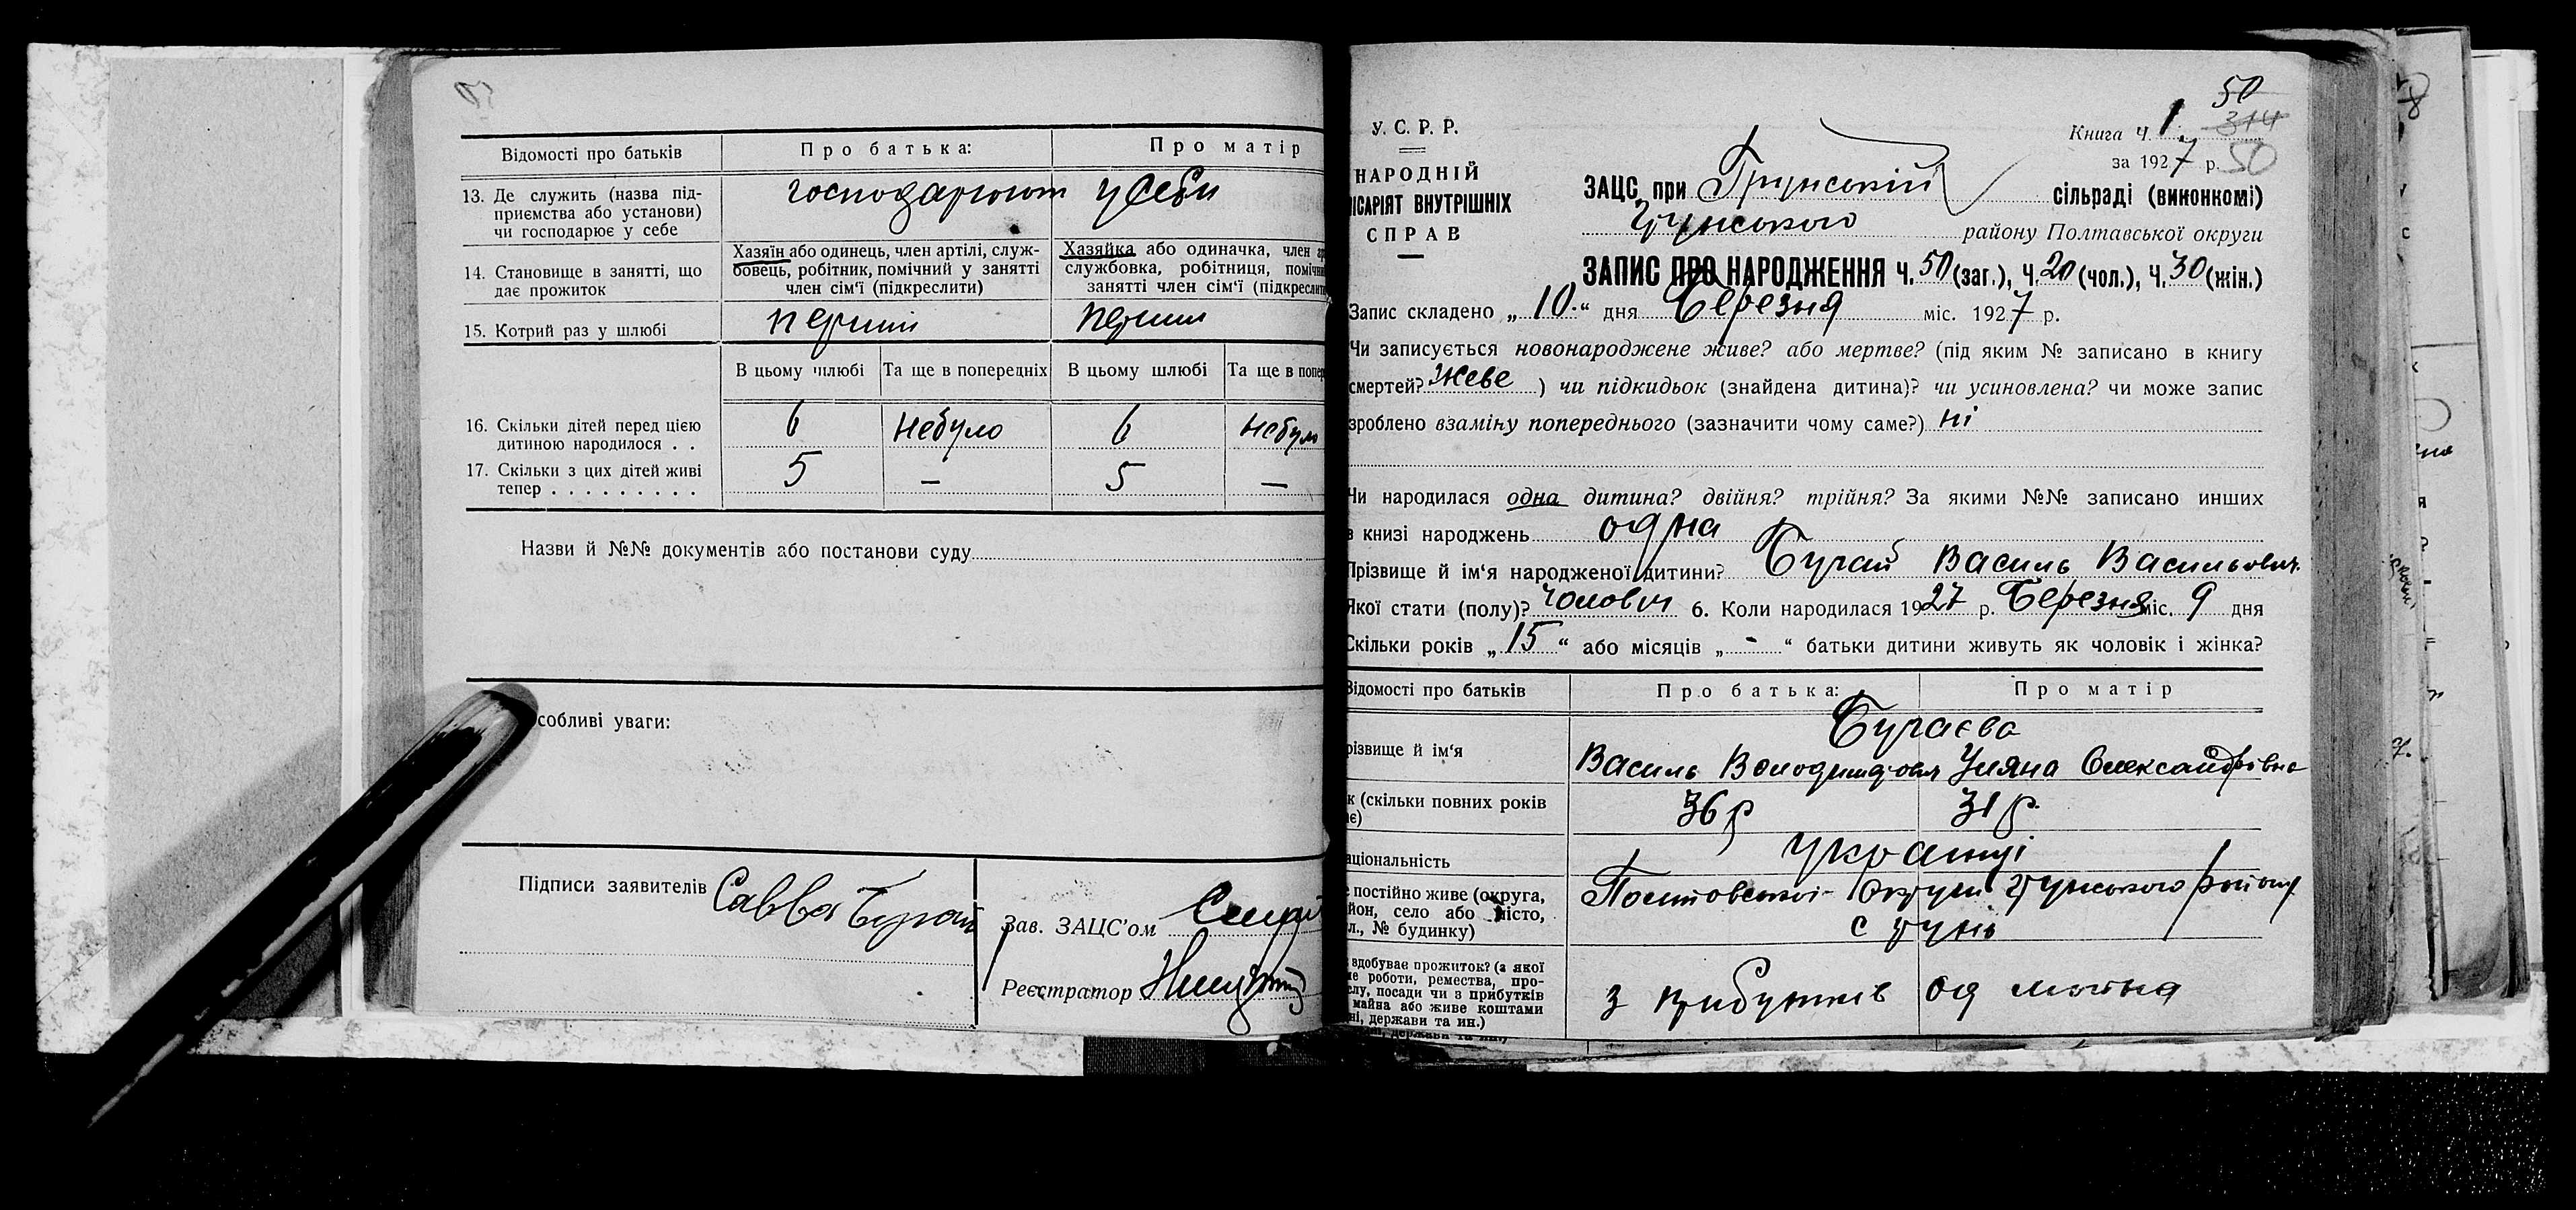 Відомості про батьків
Про батька:
Про матір
13. Де служить (назва під-
приємства або установи)
чи господарює у себе
господарюют у себи
14. Становище в занятті, що
дає прожиток
Хазяїн або одинець, член артілі, служ-
бовець, робітник, помічний у занятті
член сім'ї (підкреслити)
Хазяйка або одиначка, член ар
службовка, робітниця, помічни
занятті член сім'ї (підкреслити
15. Котрий раз у шлюбі
перший
перший
В цьому шлюбі
Та ще в попередніх
В цьому шлюбі
Та ще в попер
16. Скільки дітей перед цією
дитиною народилося . .
6
небуло
6
небуло
17. Скільки з цих дітей живі
тепер . . . . . . . . .
5
—
5
—
Назви й №№ документів або постанови суду
собливі уваги:
Підписи заявителів
Савва
Зав. ЗАЦС'ом
Реєстратор
50
У. С. Р. Р.
Книга Ч. 1.
314
за 1927 р.
50
НАРОДНІЙ
ІСАРІЯТ ВНУТРІШНІХ
СПРАВ
ЗАЦС при Грунській сільраді (виконкомі)
Грунського району Полтавської округи
ЗАПИС ПРО НАРОДЖЕННЯ Ч. 50 (заг.), Ч. 20 (чол.), Ч. 30 (жін.)
Запис складено „10" дня Березня міс. 1927 р.
Чи записується новонароджене живе? або мертве? (під яким № записано в книгу
смертей? живе ) чи підкидьок (знайдена дитина)? чи усиновлена? чи може запис
зроблено взаміну попереднього (зазначити чому саме?) ні
Чи народилася одна дитина? двійня? трійня? За якими №№ записано инших
в книзі народжень одна
Прізвище й ім'я народженої дитини? Бугай Василь Васильович
Якої стати (полу)? чоловіч 6. Коли народилася 1927 р. Березня міс. 9 дня
Скільки років „15" або місяців „-" батьки дитини живуть як чоловік і жінка?
Відомості про батьків
Про батька:
Про матір
різвище й ім'я
Бугаєва
Василь Володимирович
Уляна Олександрівна
к (скільки повних років
є)
36 р
31 р.
аціональність
українці
е постійно живе (округа,
йон, село або місто,
л., № будинку)
Полтовської Округи Грунського району
с Грунь
вдобуває прожиток? (з якої
ме роботи, ремества, про-
слу, посади чи з прибутків
майна або живе коштами
ні, держави та ин.)
з прибутків од